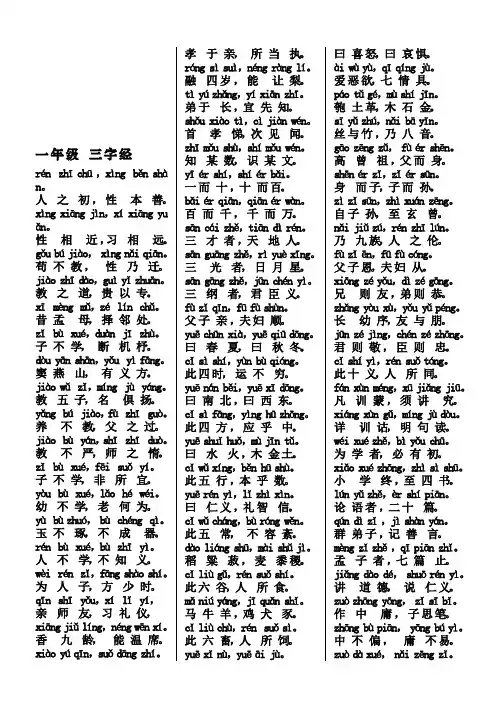 一年级 三字经
rén zhī chū，xìng běn shà
n。
人 之 初，性 本 善。
xìng xiāng jìn，xí xiāng yu
ǎn。
性 相 近，习 相 远。
gǒu bú jiào，xìng nǎi qiān。
苟 不 教， 性 乃 迁。
jiào zhī dào，guì yǐ zhuān。
教 之 道，贵 以 专。
xī mèng mǔ，zé lín chǔ。
昔 孟 母，择 邻 处。
zǐ bù xué，duàn jī zhù。
子 不 学，断 机 杼。
dòu yān shān，yǒu yì fāng。
窦 燕 山，有 义 方。
jiào wǔ zǐ，míng jù yáng。
教 五 子，名 俱 扬。
yǎng bú jiào，fù zhī guò。
养 不 教，父 之 过。
jiào bù yán，shī zhī duò。
教 不 严，师 之 惰。
zǐ bù xué，fēi suǒ yí。
子 不 学，非 所 宜。
yòu bù xué，lǎo hé wéi。
幼 不 学，老 何 为。
yù bù zhuó，bù chéng qì。
玉 不 琢，不 成 器。
rén bù xué，bù zhī yì。
人 不 学，不 知 义。
wèi rén zǐ，fāng shào shí。
为 人 子，方 少 时。
qīn shī yǒu，xí lǐ yí，
亲 师 友，习 礼 仪，
xiāng jiǔ líng，néng wēn xí。
香 九 龄， 能 温 席。
xiào yú qīn，suǒ dāng zhí。
孝 于 亲， 所 当 执。
róng sì suì，néng ràng lí。
融 四 岁， 能 让 梨。
tì yú zhǎng，yí xiān zhī。
弟 于 长，宜 先 知。
shǒu xiào tì，cì jiàn wén。
首 孝 悌，次 见 闻。
zhī mǒu shù，shí mǒu wén。
知 某 数，识 某 文。
yī ér shí，shí ér bǎi。
一 而 十，十 而 百。
bǎi ér qiān，qiān ér wàn。
百 而 千， 千 而 万。
sān cái zhě，tiān dì rén。
三 才 者，天 地 人。
sān guāng zhě，rì yuè xīng。
三 光 者，日 月 星。
sān gāng zhě，jūn chén yì。
三 纲 者，君 臣 义。
fù zǐ qīn，fū fù shùn。
父 子 亲，夫 妇 顺。
yuē chūn xià，yuē qiū dōng。
曰 春 夏，曰 秋 冬。
cǐ sì shí，yùn bù qióng。
此 四 时，运 不 穷。
yuē nán běi，yuē xī dōng。
曰 南 北，曰 西 东。
cǐ sì fāng，yìng hū zhōng。
此 四 方，应 乎 中。
yuē shuǐ huǒ，mù jīn tǔ。
曰 水 火，木 金 土。
cǐ wǔ xíng，běn hū shù。
此 五 行，本 乎 数。
yuē rén yì，lǐ zhì xìn。
曰 仁 义，礼 智 信。
cǐ wǔ cháng，bù róng wěn。
此 五 常，不 容 紊。
dào liáng shū，mài shǔ jì。
稻 粱 菽，麦 黍 稷。
cǐ liù gǔ，rén suǒ shí。
此 六 谷，人 所 食。
mǎ niú yáng，jī quǎn shǐ。
马 牛 羊，鸡 犬 豕。
cǐ liù chù，rén suǒ sì。
此 六 畜，人 所 饲。
yuē xǐ nù，yuē āi jù。
曰 喜 怒，曰 哀 惧。
ài wù yù，qī qíng jù。
爱 恶 欲，七 情 具。
páo tǔ gé，mù shí jīn。
匏 土 革，木 石 金。
sī yǔ zhú，nǎi bā yīn。
丝 与 竹，乃 八 音。
gāo zēng zǔ，fù ér shēn。
高 曾 祖，父 而 身。
shēn ér zǐ，zǐ ér sūn。
身 而 子，子 而 孙。
zì zǐ sūn，zhì xuán zēng。
自 子 孙，至 玄 曾。
nǎi jiǔ zú，rén zhī lún。
乃 九 族，人 之 伦。
fù zǐ ēn，fū fù cóng。
父 子 恩，夫 妇 从。
xiōng zé yǒu，dì zé gōng。
兄 则 友，弟 则 恭。
zhǎng yòu xù，yǒu yǔ péng。
长 幼 序，友 与 朋。
jūn zé jìng，chén zé zhōng。
君 则 敬，臣 则 忠。
cǐ shí yì，rén suǒ tóng。
此 十 义，人 所 同。
fán xùn méng，xū jiǎng jiū。
凡 训 蒙，须 讲 究。
xiáng xùn gǔ，míng jù dòu。
详 训 诂，明 句 读。
wéi xué zhě，bì yǒu chū。
为 学 者，必 有 初。
xiǎo xué zhōng，zhì sì shū。
小 学 终，至 四 书。
lún yǔ zhě，èr shí piān。
论 语 者，二 十 篇。
qún dì zǐ，jì shàn yán。
群 弟 子，记 善 言。
mèng zǐ zhě，qī piān zhǐ。
孟 子 者，七 篇 止。
jiǎng dào dé，shuō rén yì。
讲 道 德，说 仁 义。
zuò zhōng yōng，zǐ sī bǐ。
作 中 庸，子 思 笔。
zhōng bù piān，yōng bú yì。
中 不 偏， 庸 不 易。
zuò dà xué，nǎi zēng zǐ。